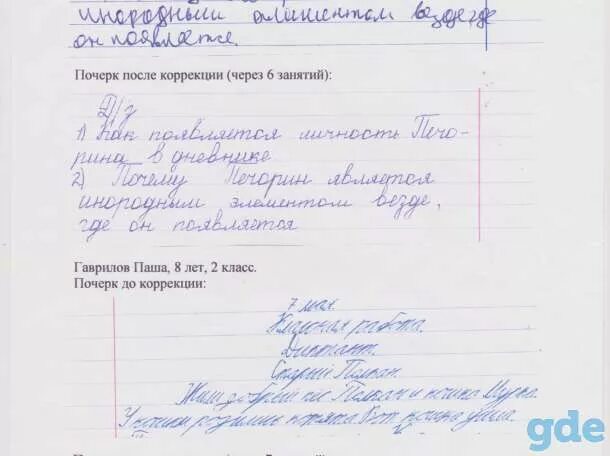 инородным элиментом везде, где
он появляется.
Почерк после коррекции (через 6 занятий):
Д/з
1) Как появляется личность Печо-
рина в дневнике
2) Почему Печорин является
инородным элементом везде,
где он появляется
Гаврилов Паша, 8 лет, 2 класс.
Почерк до коррекции:
7 мая.
Классная работа.
Диктант.
Старый Полкан.
Жили добрый пёс Полкан и кошка Мурка.
У кошки родились котята Вот кошка ушла.
gde